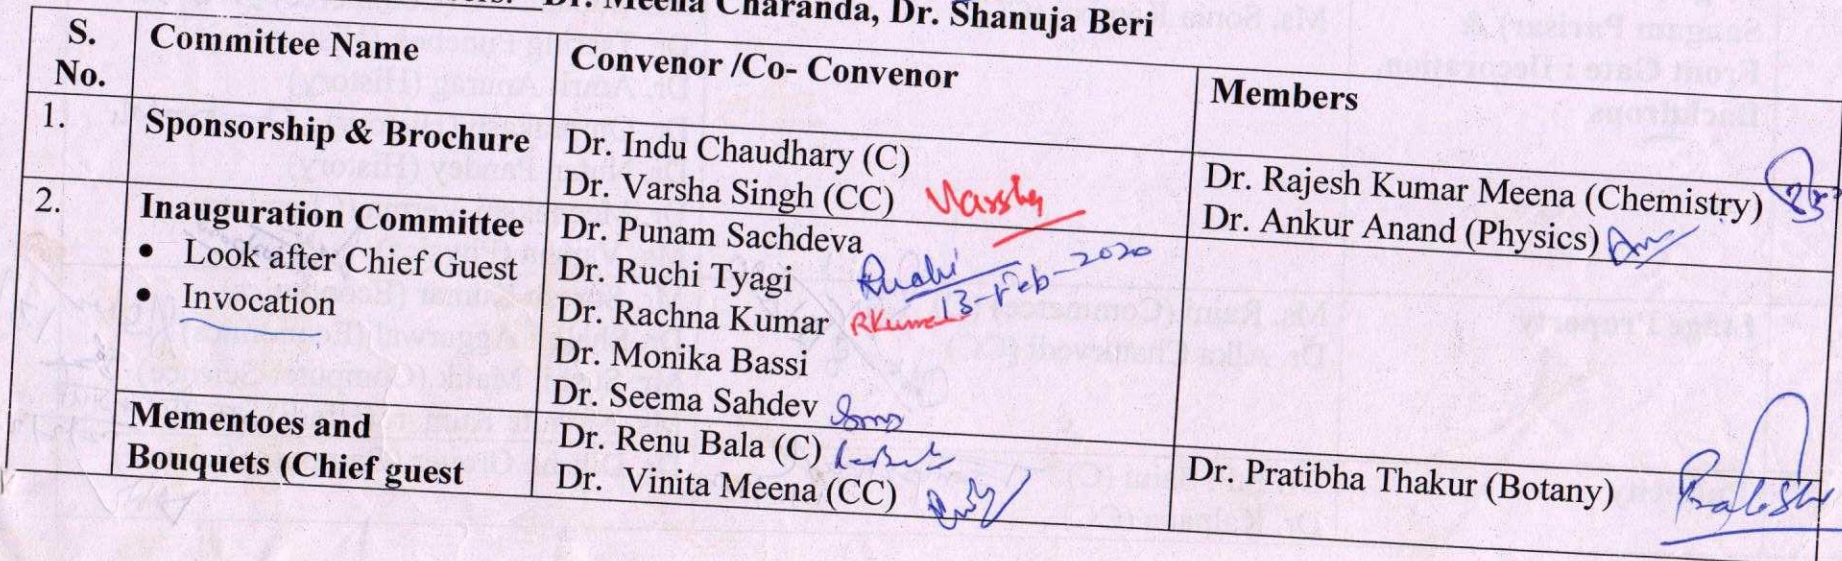 Dr. Meena Charanda, Dr. Shanuja Beri
S. No. Committee Name Convenor /Co- Convenor Members
1. Sponsorship & Brochure
Dr. Indu Chaudhary (C)
Dr. Varsha Singh (CC) Varsha
Dr. Rajesh Kumar Meena (Chemistry)
Dr. Ankur Anand (Physics)
2. Inauguration Committee
• Look after Chief Guest
• Invocation
Dr. Punam Sachdeva
Dr. Ruchi Tyagi Ruchi 13-Feb-2020
Dr. Rachna Kumar RKumar
Dr. Monika Bassi
Dr. Seema Sahdev
Mementoes and
Bouquets (Chief guest
Dr. Renu Bala (C)
Dr. Vinita Meena (CC)
Dr. Pratibha Thakur (Botany)